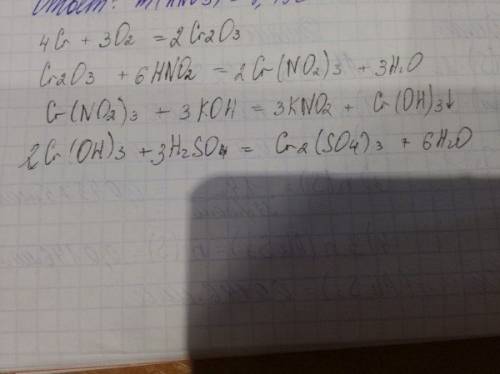 Ответ: m(HNO3) =
4Cr + 3O2 = 2Cr2O3
Cr2O3 + 6HNO2 = 2Cr(NO2)3 + 3H2O
Cr(NO2)3 + 3KOH = 3KNO2 + Cr(OH)3↓
2Cr(OH)3 + 3H2SO4 = Cr2(SO4)3 + 6H2O